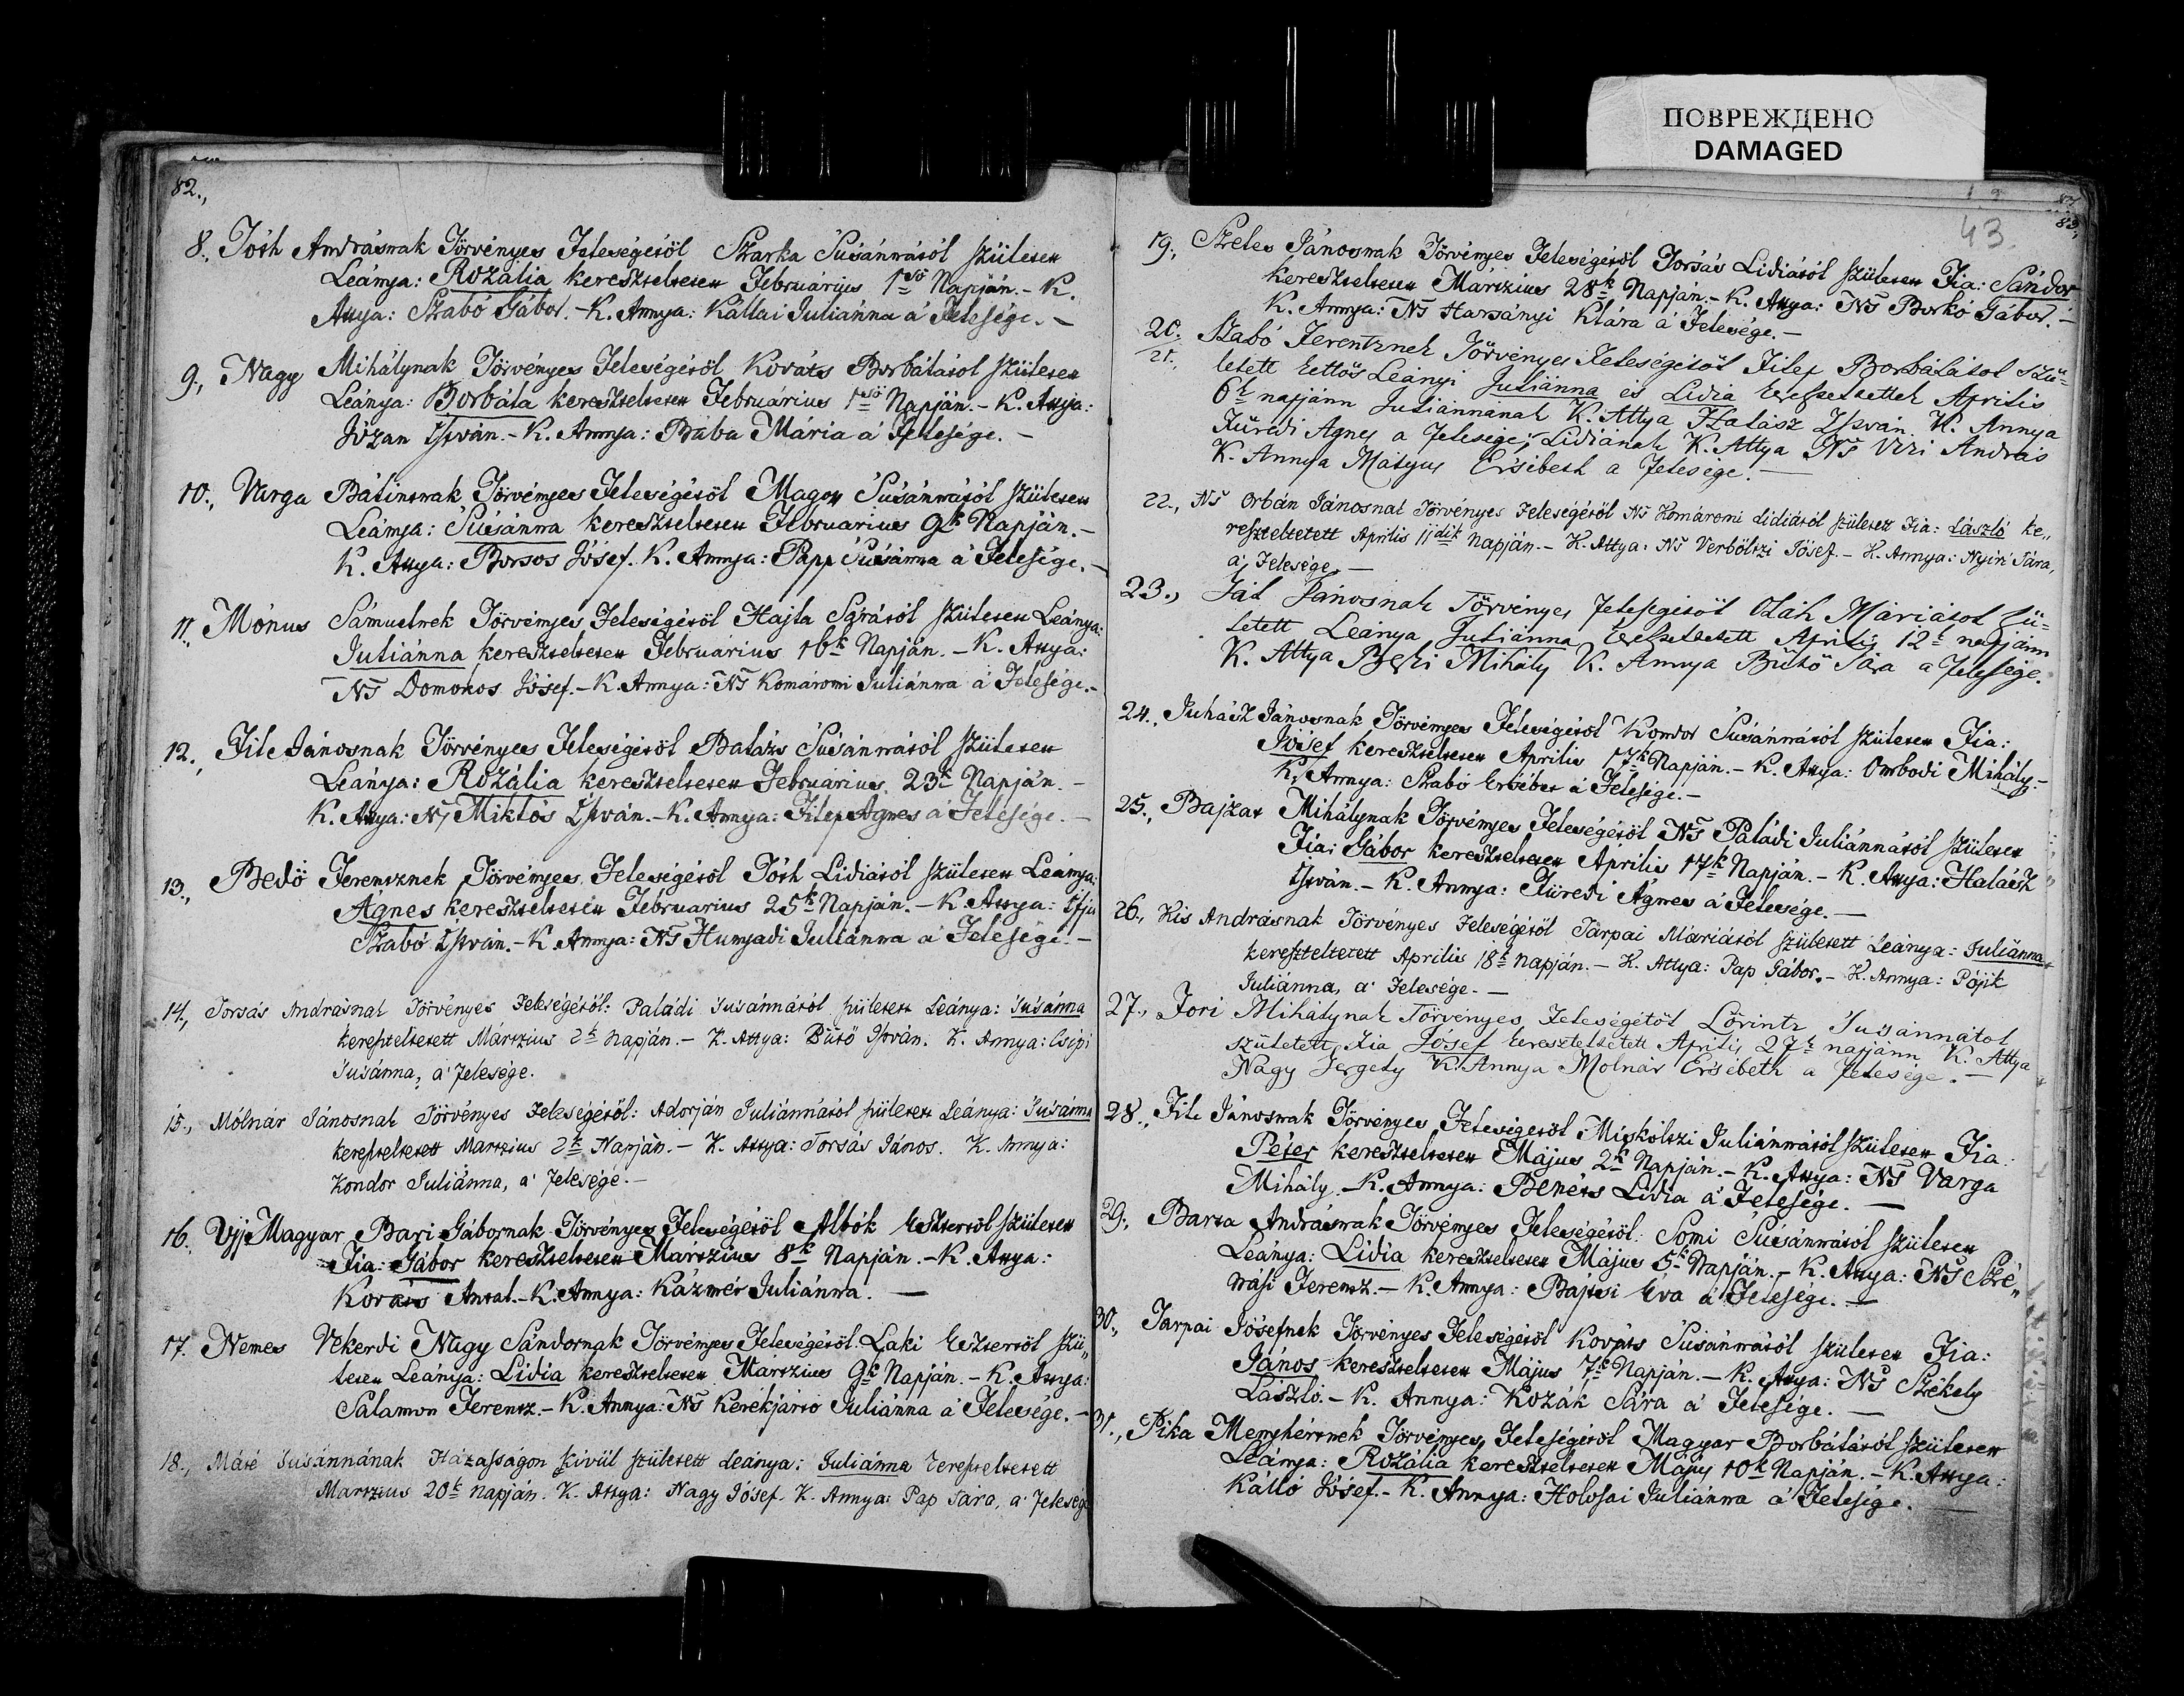 ПОВРЕЖДЕНО
DAMAGED
82.,
8., Tóth Andrásnak Törvényes Feleségétöl Szarka Susánnától született
Leánya: Rozália kereszteltetett Februárius 1ső Napján. - K.
Attya: Szabó Gábor. - K. Annya: Kállai Juliánna a' Felesége. -
9., Nagy Mihálynak Törvényes Feleségétöl Kováts Borbálától született
Leánya: Borbála kereszteltetett Februárius 1ső Napján. - K. Attya:
Józan István. - K. Annya: Buba Mária a' Felesége. -
10., Varga Bálintnak Törvényes Feleségétöl Magon Susánnától született
Leánya: Susánna kereszteltetett Februarius 9k Napján. -
K. Attya: Borsos Jósef. K. Annya: Papp Susánna a' Felesége. -
11. Mónus Sámuelnek Törvényes Feleségétöl Hajta Sárától született Leánya:
Juliánna kereszteltetett Februárius 16k Napján. - K. Attya:
Ns Domokos Jósef. - K. Annya: Ns Komáromi Juliánna a' Felesége. -
12., File Jánosnak Törvényes Feleségétöl Balázs Susánnától született
Leánya: Rozália kereszteltetett Februárius 23k Napján. -
K. Attya: Ns Miklós István. - K. Annya: Filep Agnes a' Felesége. -
13., Bedö Ferentznek Törvényes Feleségétöl Tóth Lidiától született Leánya:
Agnes kereszteltetett Februarius 25k Napján. - K Attya: Ifju
Szabó István. - K Annya: Ns Hunyadi Juliánna a' Felesége. -
14., Torsás Andrásnak Törvényes Feleségétöl: Paládi Susánnától született Leánya: Susánna
kereszteltetett Mártzius 2k Napján. - K. Attya: Bütö István. K. Annya: Csipi
Susánna, a' felesége.
15., Mólnár Jánosnak Törvényes Feleségétöl: Adorján Juliánnától született Leánya: Susánna
kereszteltetett Martzius 2k Napján. - K. Attya: Torsás János. K. Annya:
Kondor Juliánna, a' felesége. -
16. Ujj Magyar Bari Gábornak Törvényes Feleségétöl Albók Esztertöl született
Fia: Gábor kereszteltetett Mártzius 8k Napján. - K. Attya:
Kováts Antal. - K. Annya: Kázmér Juliánna. -
17. Nemes Vekerdi Nagy Sándornak Törvényes Feleségétöl: Laki Esztertöl szü„
letett Leánya: Lidia kereszteltetett Martzius 9k Napján. - K. Attya:
Salamon Ferentz. - K. Annya: Ns Kerékjártó Juliánna a' Felesége. -
18., Máté Susánnának Házasságon kivül született Leánya: Juliánna kereszteltetett
Martzius 20k napján. K. Attya: Nagy Jósef. K. Annya: Pap Sára, a' felesége
83.
43.
19., Szeles Jánosnak Törvényes Feleségétöl Torsás Lidiától született Fia: Sándor
kereszteltetett Mártzius 28k Napján. - K. Attya: Ns Borkó Gábor. -
K. Annya: Ns Harsányi Klára a' Felesége. -
20. Szabó Ferentznek Törvényes Feleségétöl Filep Borbálától szü-
21. letett kettős Leányi Juliánna és Lidia kereszteltettek Aprilis
6k napjánn Juliánnának K. Attya Halász István K. Annya
Füredi Agnes a felesége; Lidiának K. Attya Ns Vizi András
K. Annya Mátyus Ersébeth a felesége. -
22., Ns Orbán Jánosnak Törvényes Feleségétöl Ns Komáromi Lidiától született Fia: László ke„
reszteltetett Aprilis 11dik napján. - K. Attya: Ns Verböltzi Jósef. - K. Annya: Nyiri Sára,
a' Felesége. -
23., Ját Jánosnak Törvényes feleségétöl Oláh Máriától szü-
letett Leánya Juliánna kereszteltetett Aprilis 12k napjánn
K. Attya Beszi Mihály K. Annya Bütö Sára a felesége.
24., Juhász Jánosnak Törvényes Feleségétöl Kondor Susánnától született Fia:
Jósef kereszteltetett Aprilis 17k Napján. - K. Attya: Ombodi Mihály. -
K. Annya: Szabó Ersébet a' Felesége. -
25., Bajzát Mihálynak Törvényes Feleségétöl Ns Paládi Juliánnától született
Fia: Gábor kereszteltetett Április 17k Napján. - K. Attya: Halász
István. - K. Annya: Füredi Ágnes a' Felesége. -
26., Kis Andrásnak Törvényes Feleségétöl Tarpai Máriától született Leánya: Juliánna,
kereszteltetett Aprilis 18k Napján. - K. Attya: Pap Gábor. - K. Annya: Pójik
Juliánna, a' Felesége. -
27., Fori Mihálynak Törvényes Feleségétöl Lörintz Susánnától
született Fia Jósef kereszteltetett Aprilis 27k napjánn K. Attya
Nagy Gergely K. Annya Molnár Ersébeth a felesége. -
28., File Jánosnak Törvényes Feleségétöl Miskóltzi Juliánnától született Fia:
Péter kereszteltetett Május 2k Napján. - K. Attya: Ns Varga
Mihály. - K. Annya: Benéts Lidia a' Felesége. -
29., Barta Andrásnak Törvényes Feleségétöl: Somi Susánnától született
Leánya: Lidia kereszteltetett Május 5k Napján. - K. Attya: Ns Szé„
nási Ferentz. - K. Annya: Bajtsi Éva a' Felesége. -
30., Tarpai Jósefnek Törvényes Feleségétöl Kováts Susánnától született Fia:
János kereszteltetett Május 7k Napján. - K. Attya: Ns Székely
László. - K. Annya: Kozák Sára a' Felesége. -
31., Pika Menyhértnek Törvényes Feleségétöl Magyar Borbálától született
Leánya: Rozália kereszteltetett Májuj 10k Napján. - K. Attya:
Kálló Jósef. - K. Annya: Holosai Juliánna a' Felesége. -